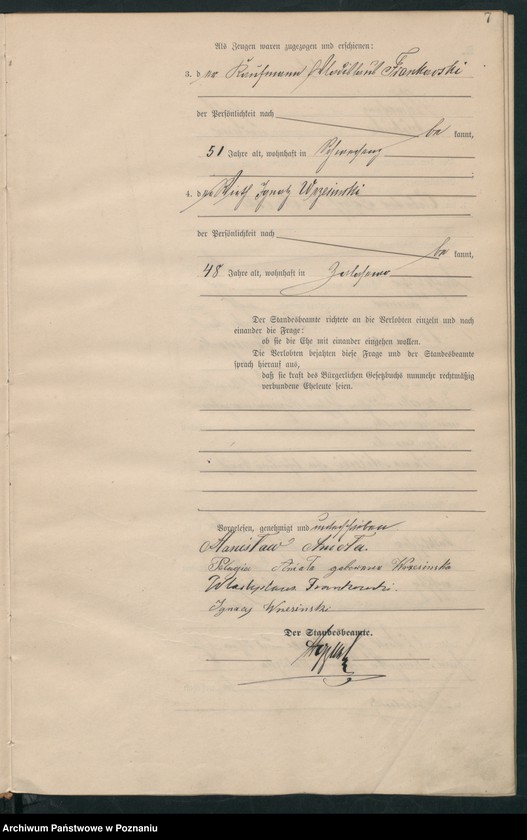 7
Als Zeugen waren zugezogen und erschienen:
3. der Kaufmann Wladislaus Frankowski
der Persönlichkeit nach
be kannt,
51 Jahre alt, wohnhaft in
4. der Wirth Ignatz Wrzesinski
der Persönlichkeit nach
be kannt,
48 Jahre alt, wohnhaft in
Der Standesbeamte richtete an die Verlobten einzeln und nach
einander die Frage:
ob sie die Ehe mit einander eingehen wollen.
Die Verlobten bejahten diese Frage und der Standesbeamte
sprach hierauf aus,
daß sie kraft des Bürgerlichen Gesetzbuchs nunmehr rechtmäßig
verbundene Eheleute seien.
Vorgelesen, genehmigt und unterschrieben
Stanisław Anioła.
Pelagia Anioła geborene Wrzesinska
Władysław Frankowski.
Ignacy Wrzesinski
Der Standesbeamte.
Archiwum Państwowe w Poznaniu